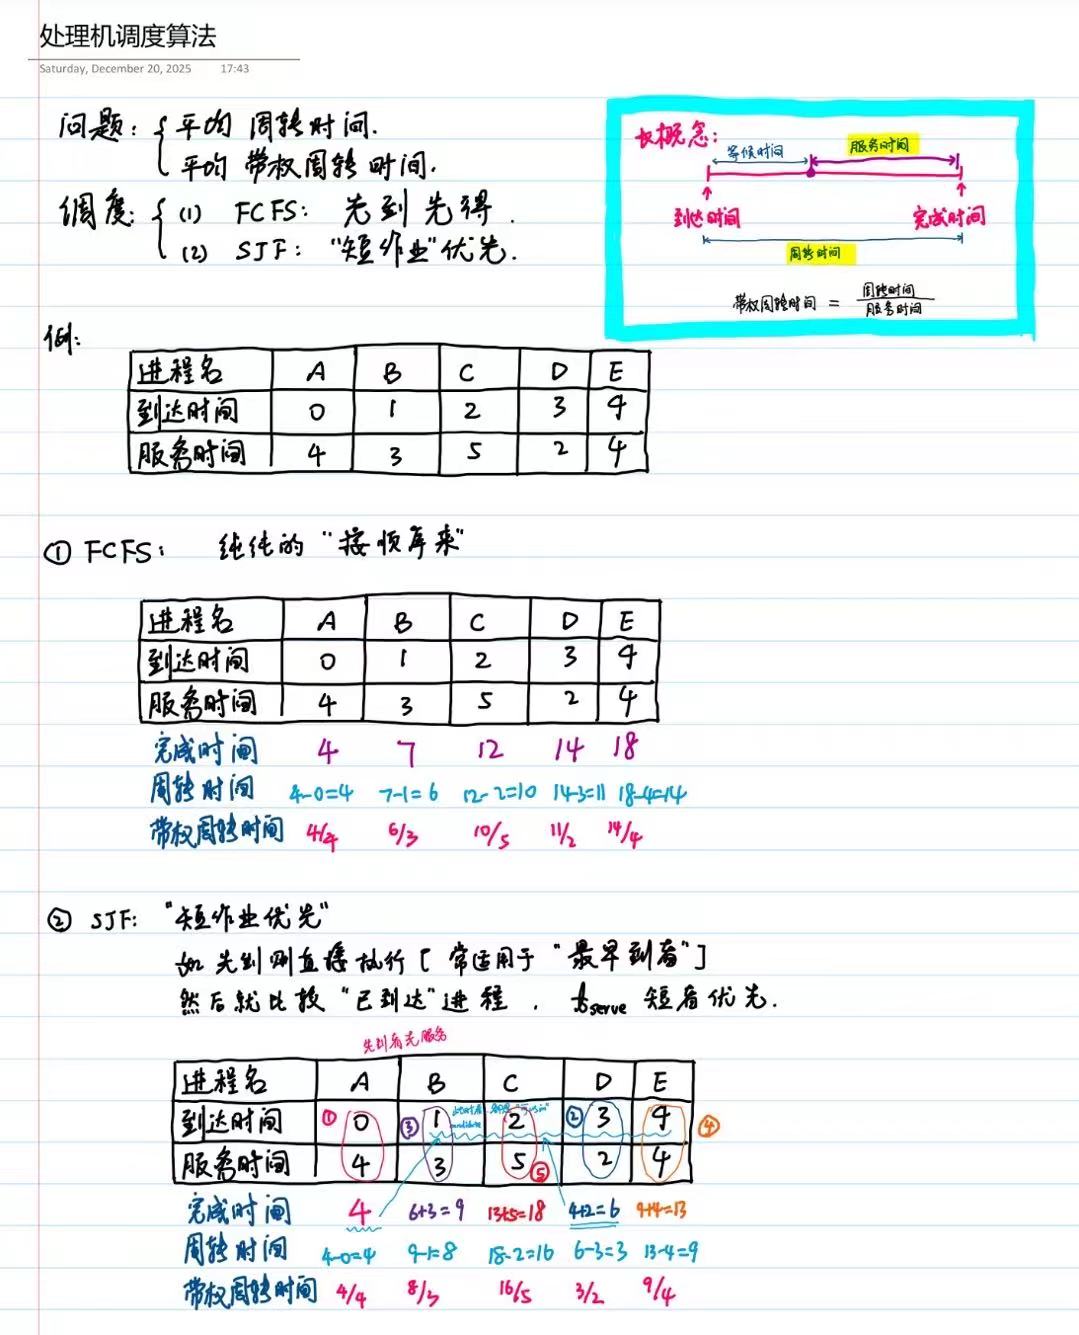 处理机调度算法
Saturday, December 20, 2025 17:43
问题: { 平均 周转时间.
平均 带权周转时间.
调度: { (1) FCFS: 先到先得.
(2) SJF: "短作业"优先.
概念:
等候时间 服务时间
到达时间 完成时间
周转时间
带权周转时间 = 周转时间
服务时间
例:
进程名 A B C D E
到达时间 0 1 2 3 4
服务时间 4 3 5 2 4
① FCFS: 纯纯的 "按顺序来"
进程名 A B C D E
到达时间 0 1 2 3 4
服务时间 4 3 5 2 4
完成时间 4 7 12 14 18
周转时间 4-0=4 7-1=6 12-2=10 14-3=11 18-4=14
带权周转时间 4/4 6/3 10/5 11/2 14/4
② SJF: "短作业优先"
如先到则直接执行 [常适用于 "最早到者"]
然后就比较 "已到达" 进程, tserve 短者优先.
先到者先服务
进程名 A B C D E
到达时间 ① 0 ③ 1 2 ② 3 4 ④
服务时间 4 3 5 ⑤ 2 4
完成时间 4 6+3=9 13+5=18 4+2=6 9+4=13
周转时间 4-0=4 9-1=8 18-2=16 6-3=3 13-4=9
带权周转时间 4/4 8/3 16/5 3/2 9/4